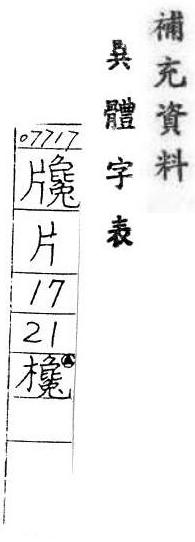 補充資料
異體字表
07717
片
17
21
欃